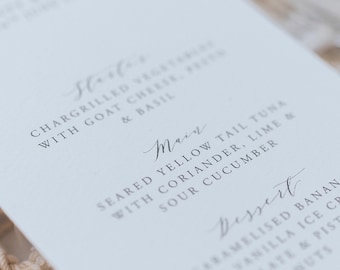 Starter
CHARGRILLED VEGETABLES
WITH GOAT CHEESE, PESTO
& BASIL
Main
SEARED YELLOW TAIL TUNA
WITH CORIANDER, LIME &
SOUR CUCUMBER
Dessert
CARAMELISED BANAN
VANILLA ICE CR
& PIST